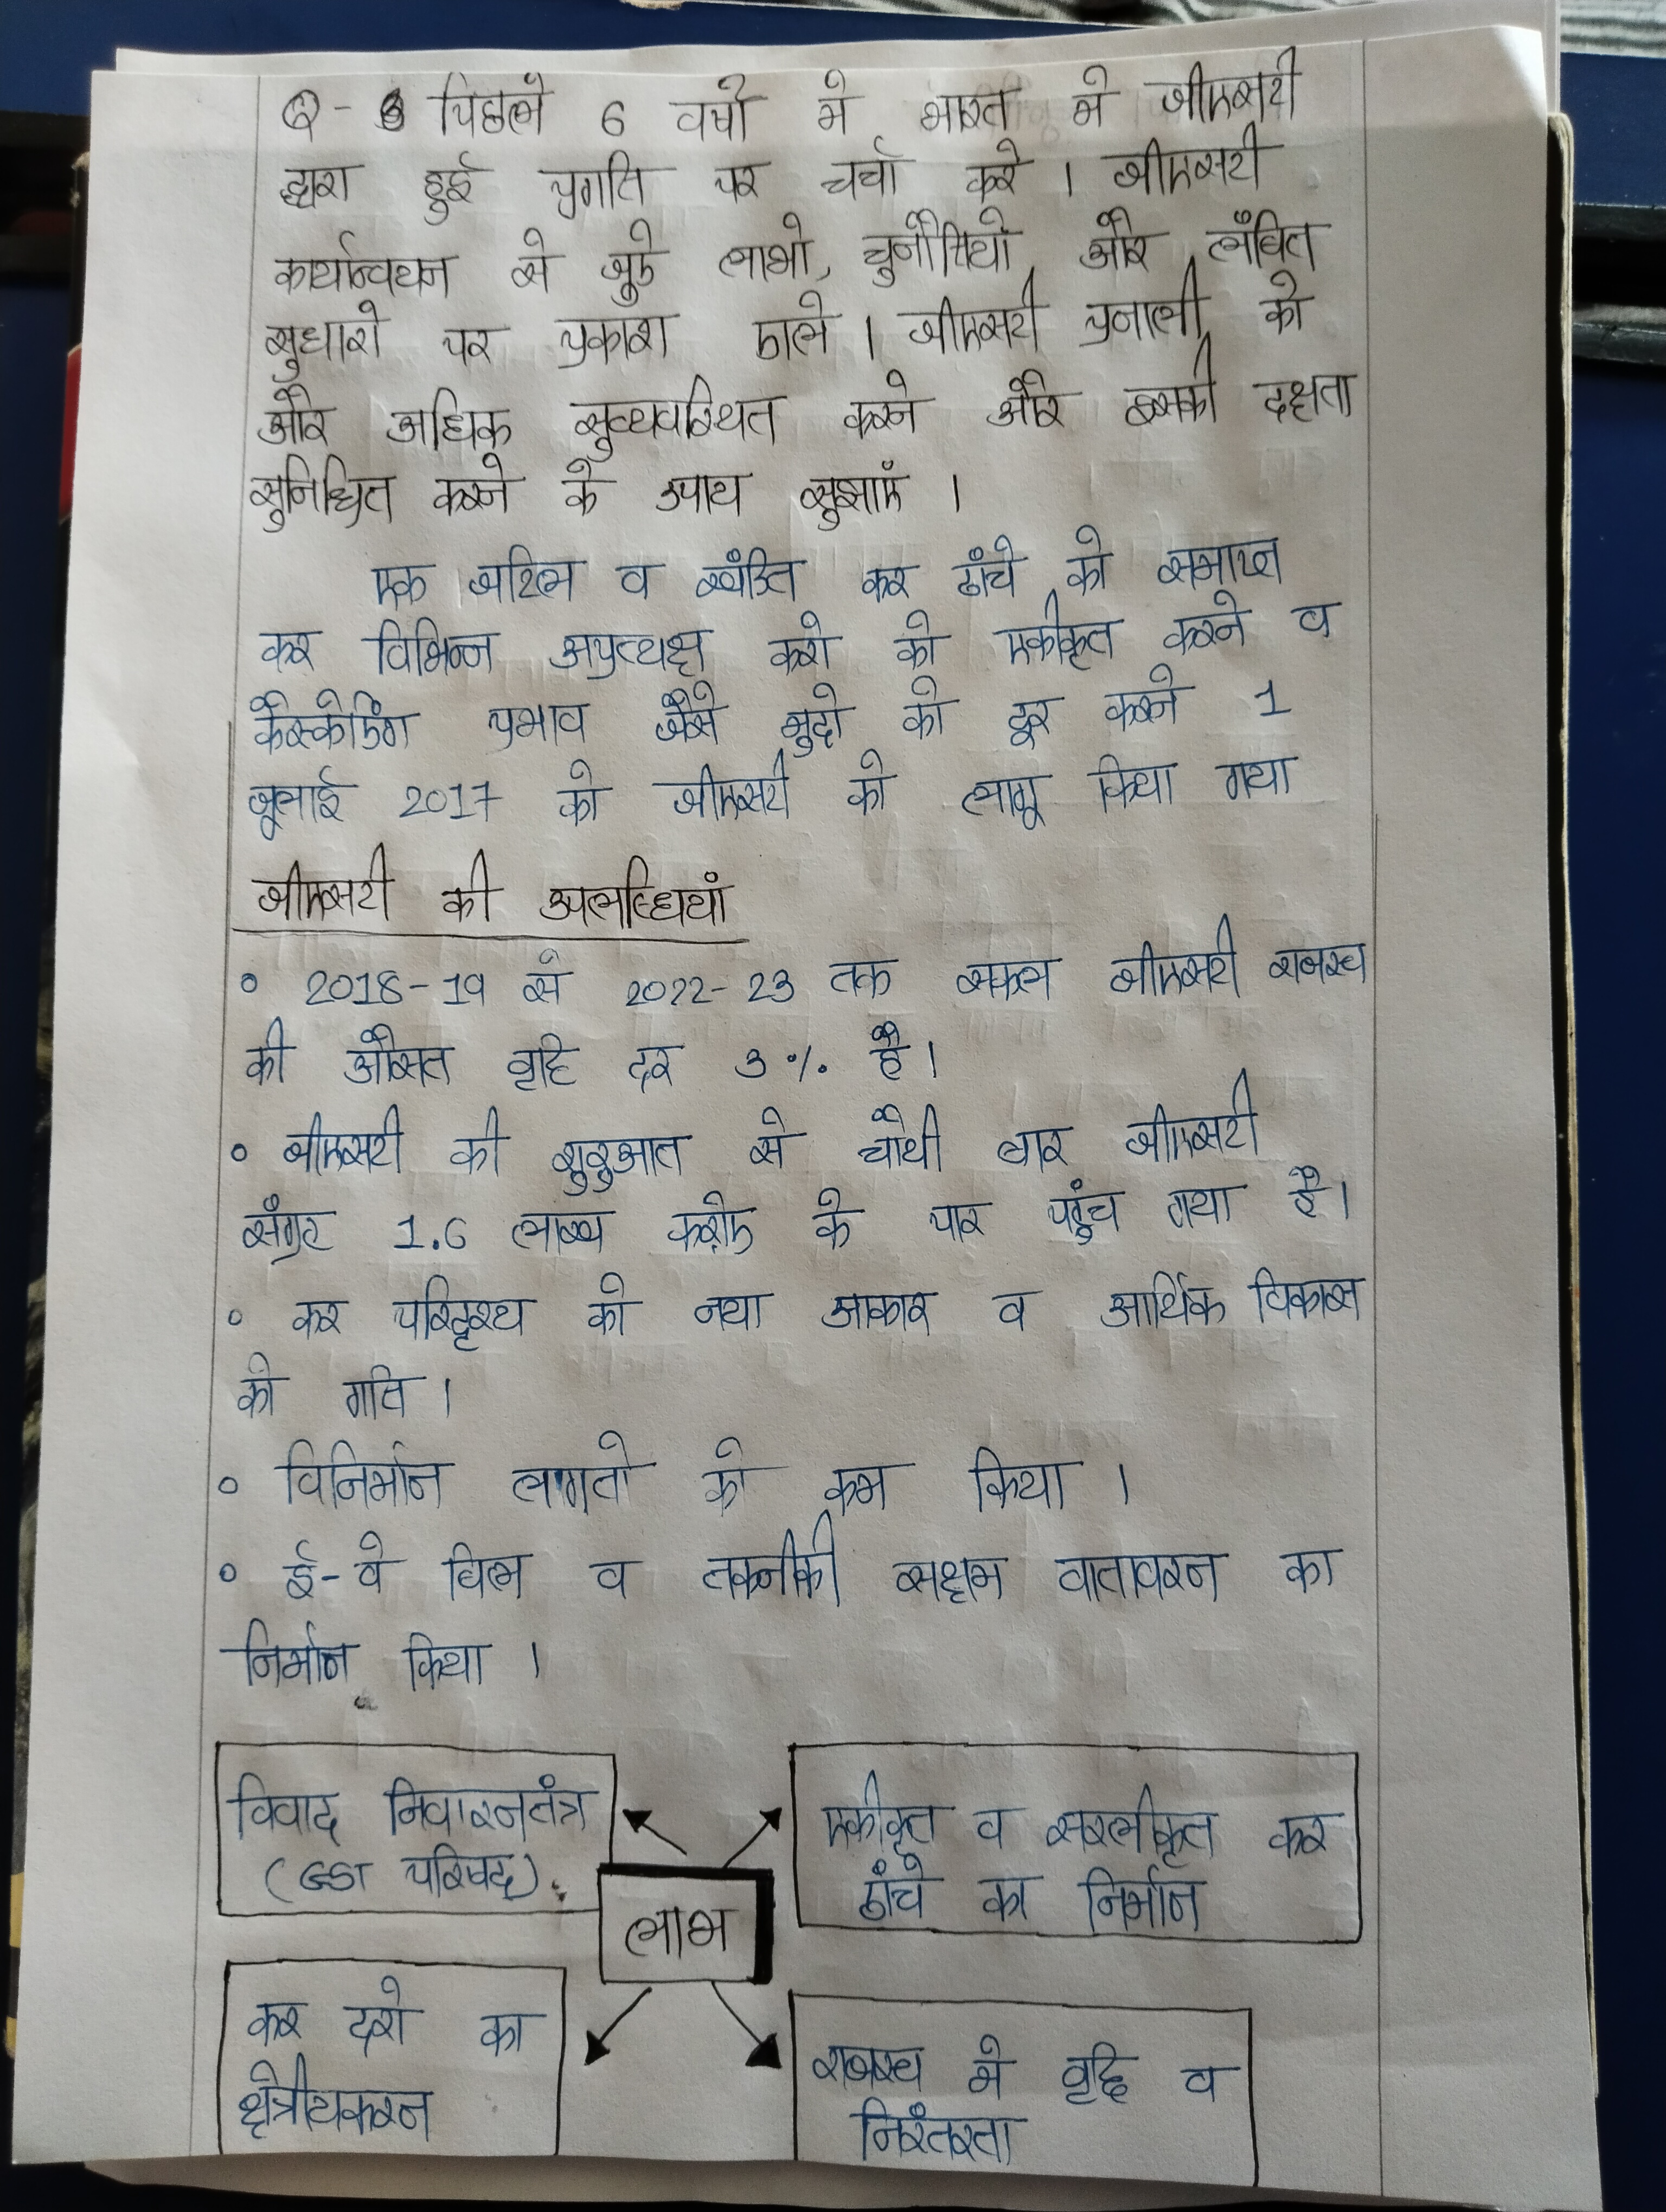 Q - 3 पिछले 6 वर्षो मे भारत मे जीएसटी
द्वारा हुई प्रगति पर चर्चा करे । जीएसटी
कार्यान्वयन से जुडे लाभो, चुनौतियो, और लंबित
सुधारो पर प्रकाश डाले । जीएसटी प्रनाली को
और अधिक सुव्यवस्थित करने और इसकी दक्षता
सुनिश्चित करने के उपाय सुझाएं ।
एक जटिल व खंडित कर ढांचे को समाप्त
कर विभिन्न अप्रत्यक्ष करो को एकीकृत करने व
कैस्केडिंग प्रभाव जैसे मुद्दो को दूर करने 1
जूलाई 2017 को जीएसटी को लागू किया गया
जीएसटी की उपलब्धियां
० 2018-19 से 2022-23 तक सकल जीएसटी राजस्व
की औसत वृद्दि दर 3 % है।
० जीएसटी की शुरुआत से चौथी बार जीएसटी
संग्रह 1.6 लाख करोड़ के पार पहुंच गया है।
० कर परिदृश्य को नया आकार व आर्थिक विकास
को गति ।
० विनिर्मान लागतो को कम किया ।
० ई-वे बिल व तकनीकी सक्षम वातावरन का
निर्मान किया ।
विवाद निवारनतंत्र
(GST परिषद)
एकीकृत व सरलीकृत कर
ढांचे का निर्मान
लाभ
कर दरो का
क्षेत्रीयकरन
राजस्व मे वृद्दि व
निरंतरता